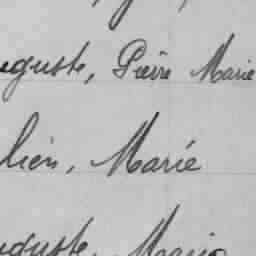 uguste, Pierre Marie
lien, Marie
uguste, Marie